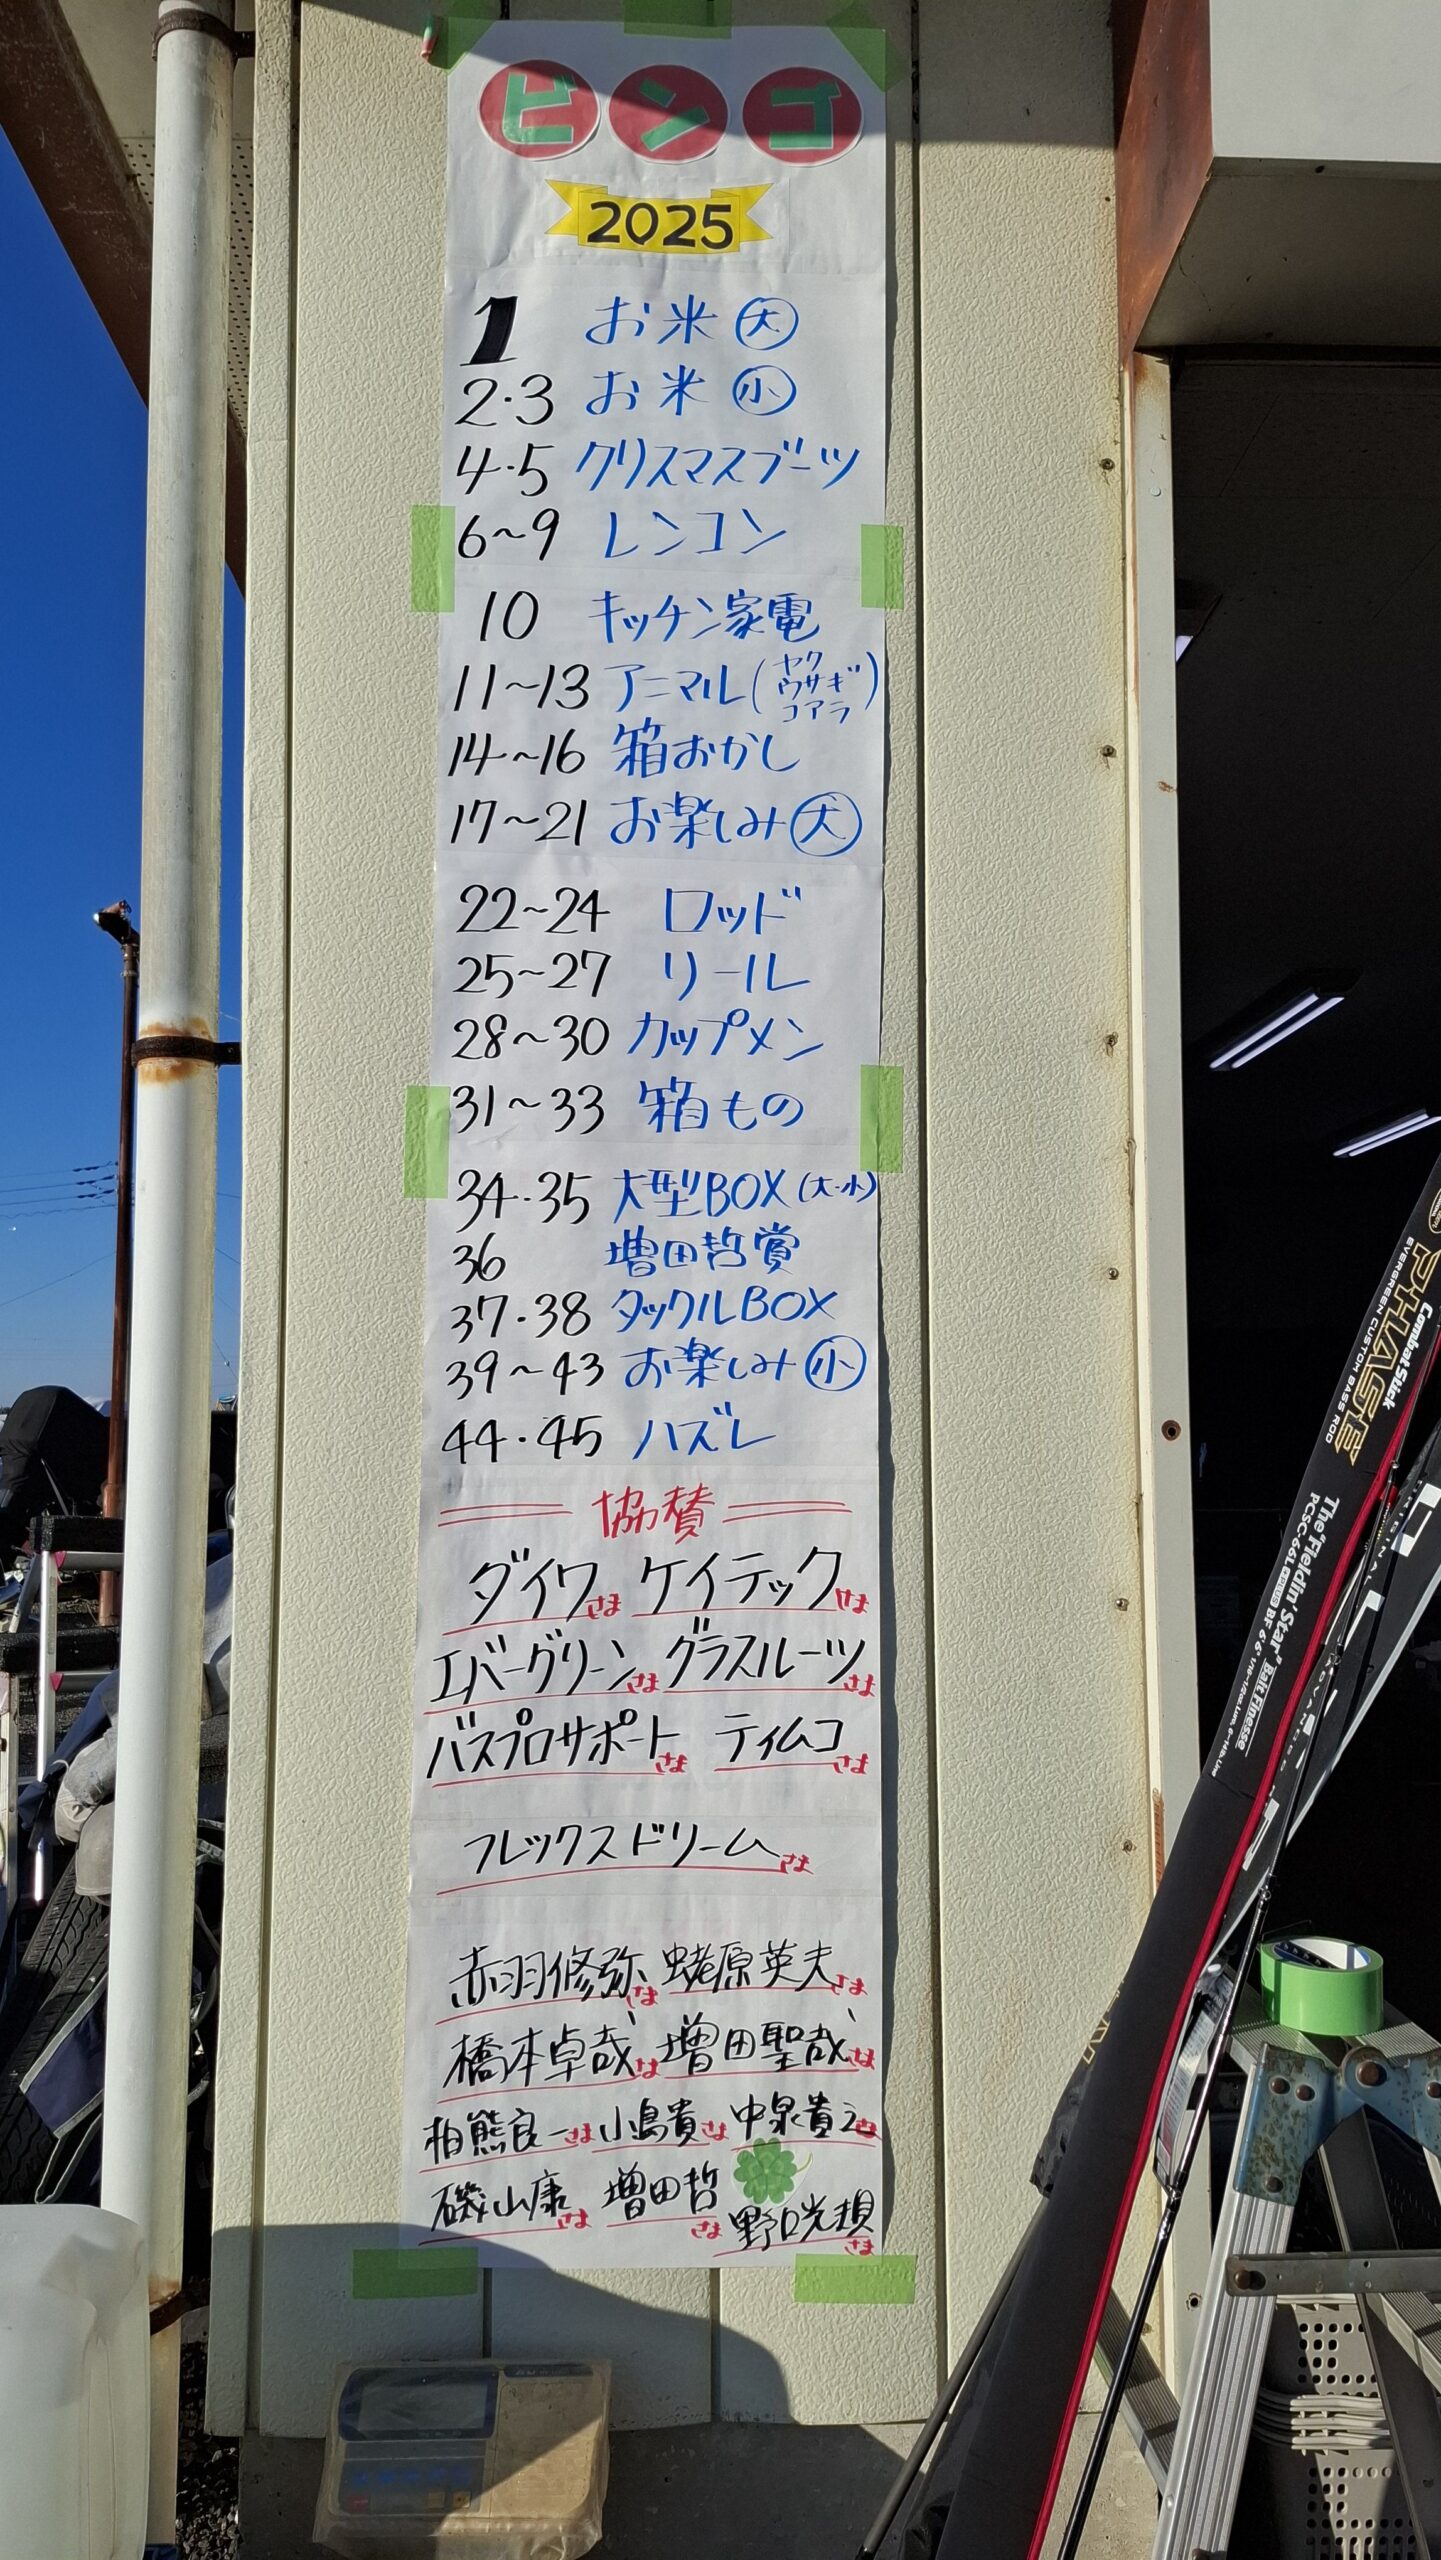 ビンゴ
2025
1 お米 大
2・3 お米 小
4・5 クリスマスブーツ
6～9 レンコン
10 キッチン家電
11～13 アニマル(ヤク ウサギ コアラ)
14～16 箱おかし
17～21 お楽しみ 大
22～24 ロッド
25～27 リール
28～30 カップメン
31～33 箱もの
34・35 大型BOX(大・小)
36 増田哲賞
37・38 タックルBOX
39～43 お楽しみ 小
44・45 ハズレ
協賛
ダイワさま ケイテックさま
エバーグリーンさま グラスルーツさま
バスプロサポートさま ティムコさま
フレックスドリームさま
赤羽修弥さま 蛯原英夫さま
橋本卓哉さま 増田聖哉さま
柏熊良一さま 小島貴さま 中泉貴之さま
磯山康さま 増田哲さま 野口光規さま
CombatStick
PHASE
EVERGREEN CUSTOM BASS ROD
The "Fieldin' Star" Bait Finesse
PCSC-66L+PLUS BF 6'6" 1/16-1/2oz.Lure, 6-14lb.Line